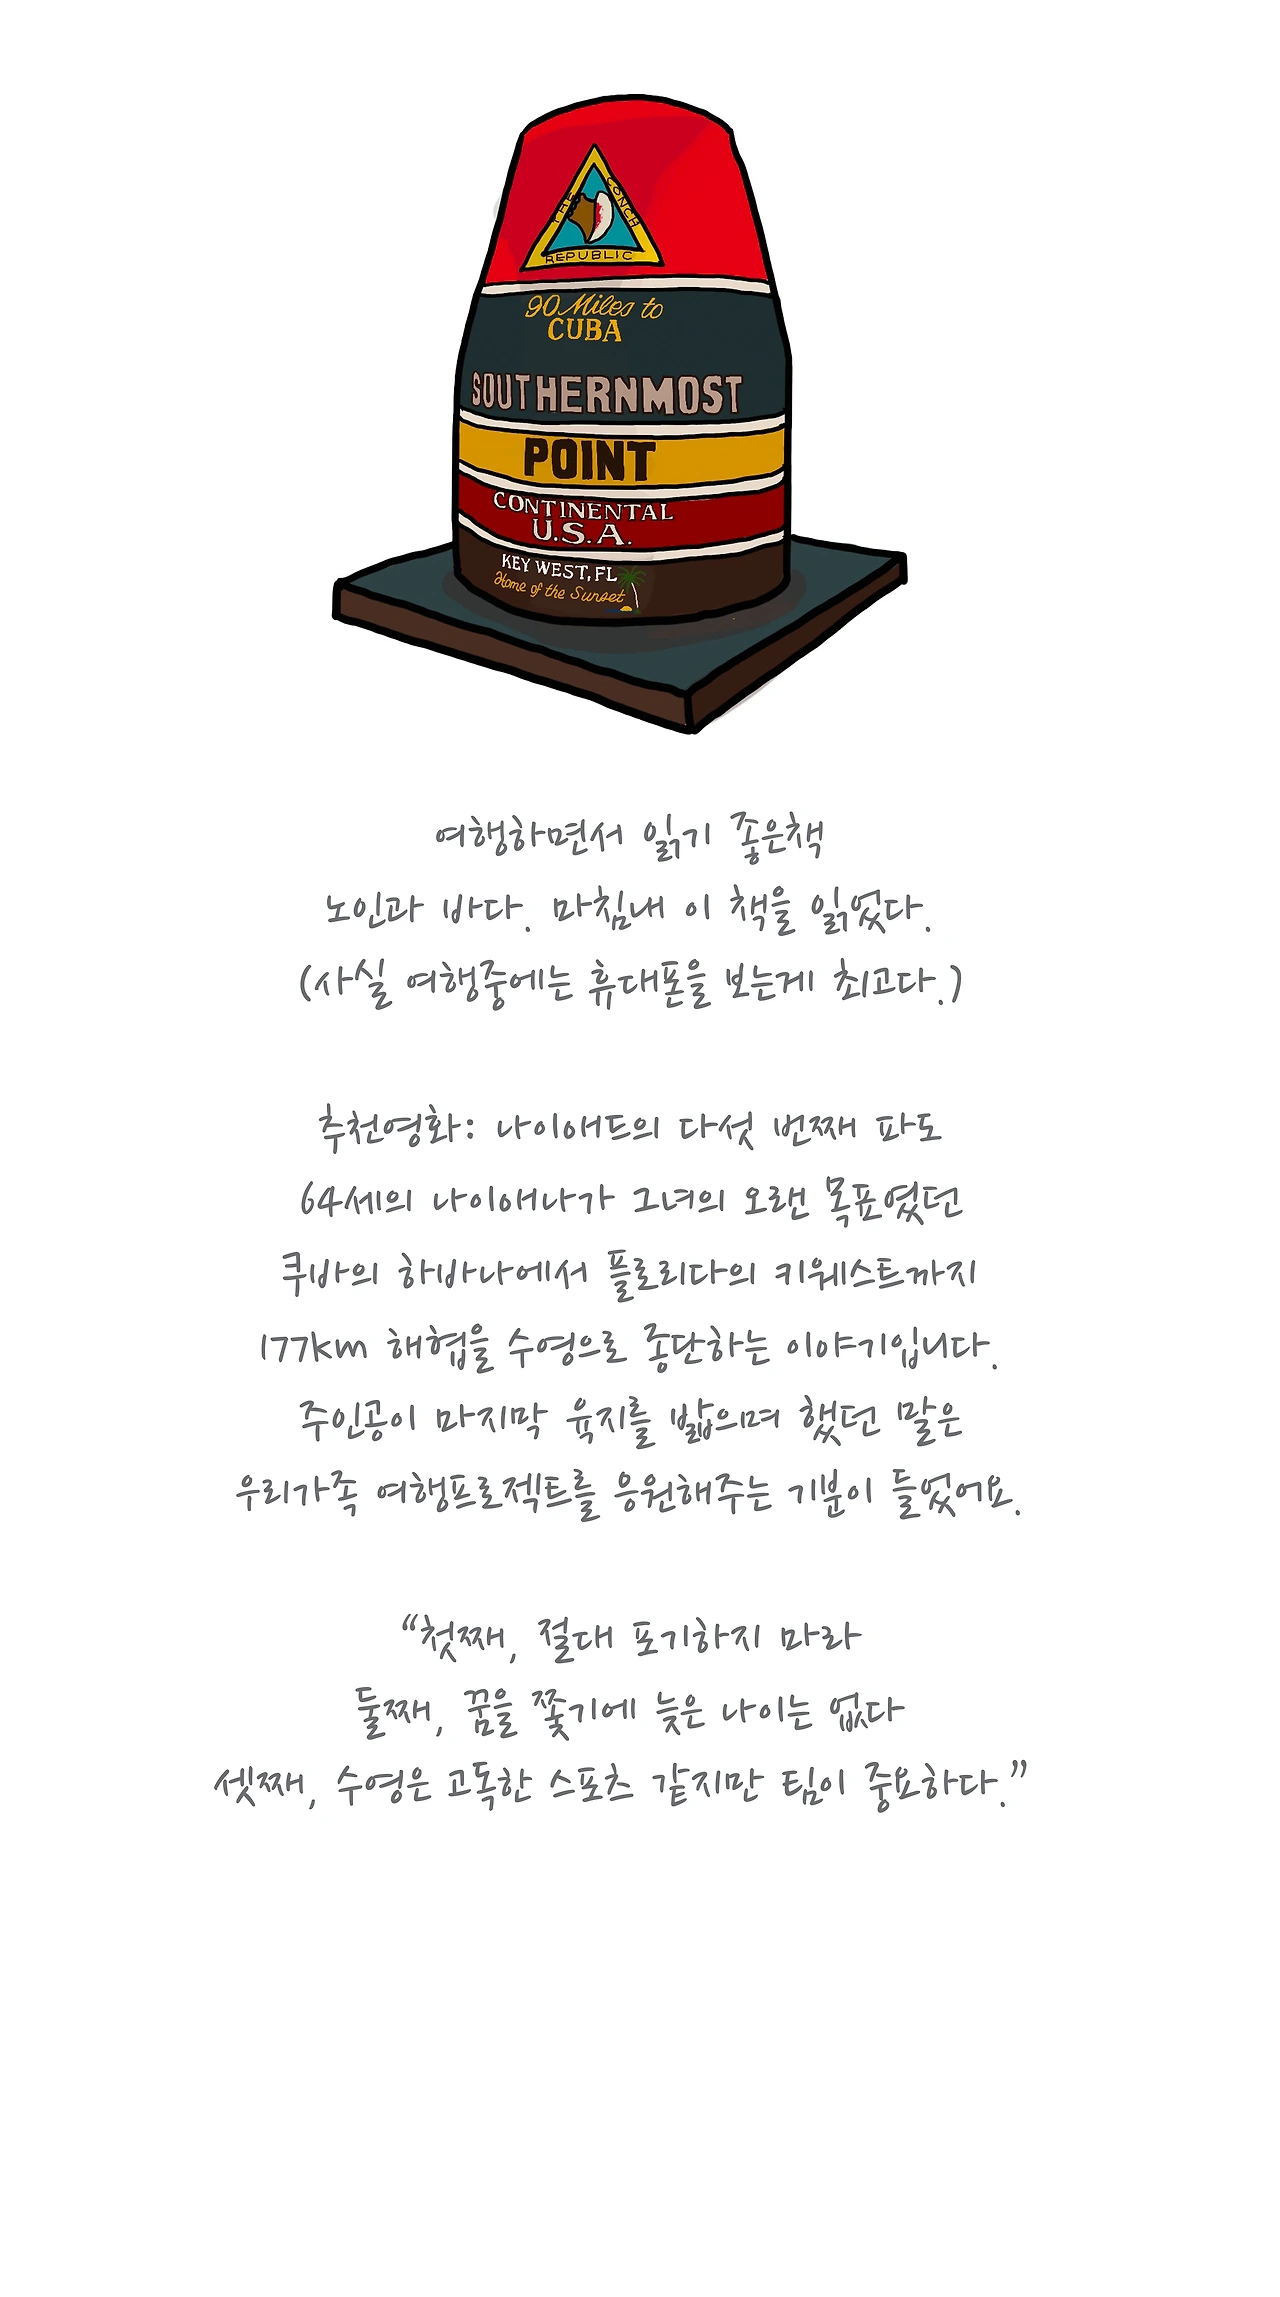 THE CONCH
REPUBLIC
90 Miles to
CUBA
SOUTHERNMOST
POINT
CONTINENTAL
U.S.A.
KEY WEST, FL
Home of the Sunset
여행하면서 읽기 좋은책
노인과 바다. 마침내 이 책을 읽었다.
(사실 여행중에는 휴대폰을 보는게 최고다.)
추천영화: 나이애드의 다섯 번째 파도
64세의 나이애나가 그녀의 오랜 목표였던
쿠바의 하바나에서 플로리다의 키웨스트까지
177km 해협을 수영으로 종단하는 이야기입니다.
주인공이 마지막 육지를 밟으며 했던 말은
우리가족 여행프로젝트를 응원해주는 기분이 들었어요.
“첫째, 절대 포기하지 마라
둘째, 꿈을 쫓기에 늦은 나이는 없다
셋째, 수영은 고독한 스포츠 같지만 팀이 중요하다.”